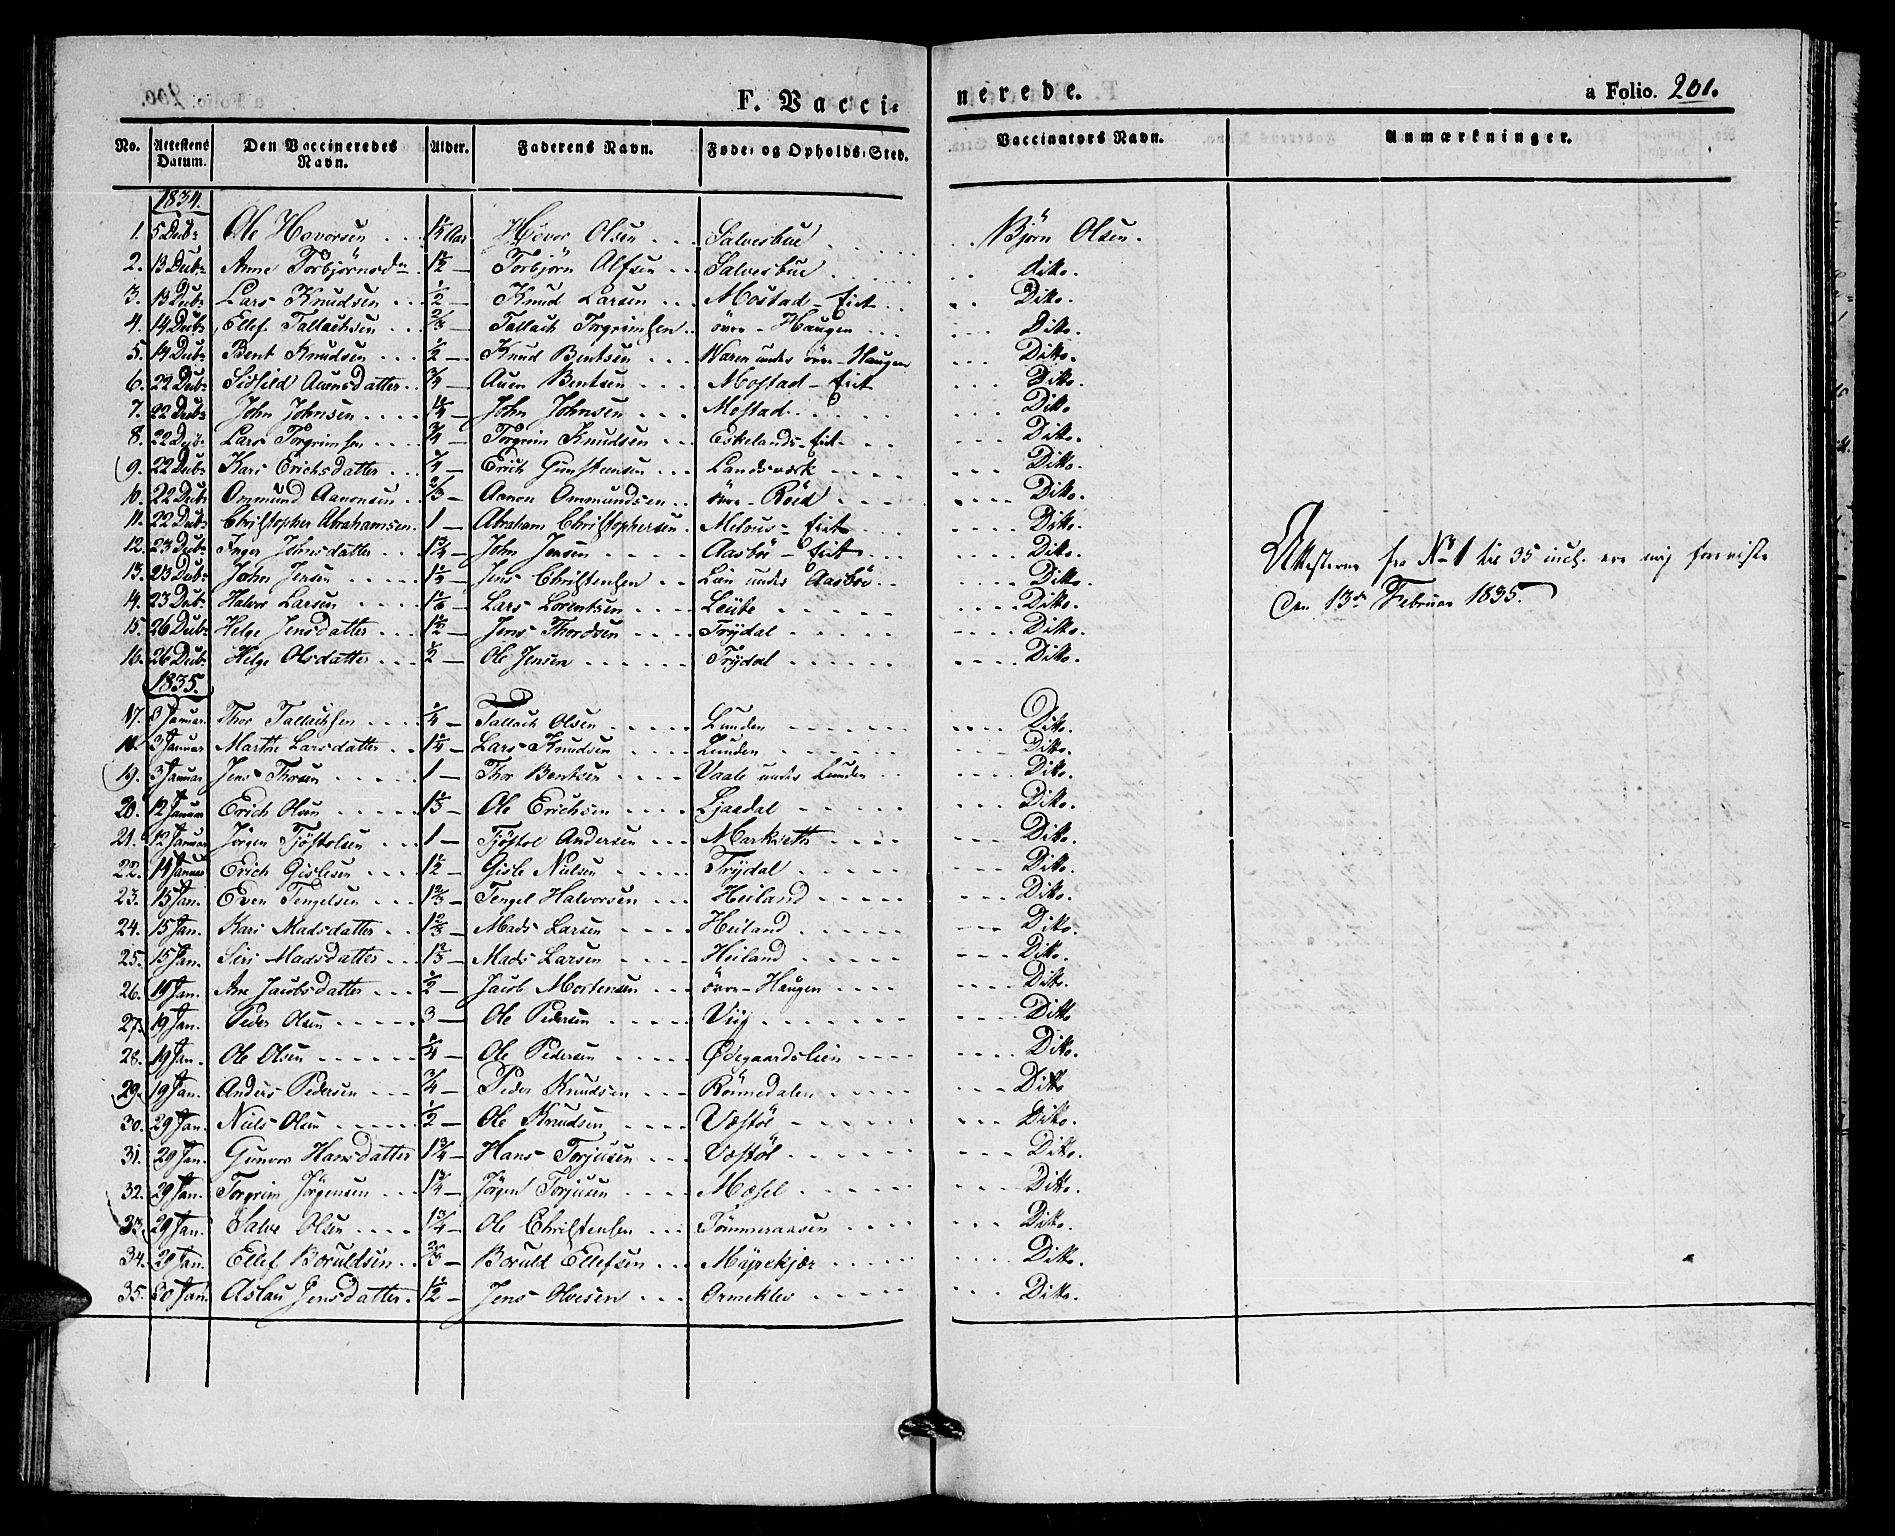 F. Vacci-
nerede.
a Folio. 201.
No. Attestens Datum. Den Vaccineredes Navn. Alder. Faderens Navn. Føde- og Opholds-Sted. Vaccinators Navn. Anmærkninger.
1834.
1. 5 Decbr Ole Hovorsen 1¼ Aar Høvor Olsen Salvesbue Björn Olsen.
2. 13 Decbr Anne Torbjörnsdr 1½ — Torbjörn Alfsen Salvesbue ditto.
3. 13 Decbr Lars Knudsen ½ — Knud Larsen Mostad-Eiet Ditto.
4. 14 Decbr Ellef Tallachsen ⅔ — Tallach Torgrimsen övre-Haugen Ditto.
5. 14 Decbr Bent Knudsen ½ — Knud Bentsen Waren under övre-Haugen Ditto.
6. 22 Decbr Sidsild Auensdatter ¾ — Auen Bentsen Mostad-Eiet Ditto.
7. 22 Decbr John Johnsen 1¼ — John Johnsen Mostad Ditto.
8. 22 Decbr Lars Torgrimsen ¾ — Torgrim Knudsen Eskelands-Eiet Ditto.
9. 22 Decbr Kari Erichsdatter ¼ — Erich Gunstensen Landsværk Ditto.
10. 22 Decbr Ommund Aanonsen ⅔ — Aanon Ommundsen övre-Röed Ditto.
11. 22 Decbr Christopher Abrahamsen 1 — Abraham Christophersen Melaus-Eiet Ditto.
12. 23 Decbr Inger Johnsdatter 1¾ — John Jensen Aasbö-Eiet Ditto.
13. 23 Decbr John Jensen 1¼ — Jens Christensen Lien under Aasbö Ditto.
14. 23 Decbr Halvor Larsen 1⅙ — Lars Lorentsen Leübe Ditto.
15. 26 Decbr Helge Jensdatter 1½ — Jens Thordsen Trÿdal Ditto.
16. 26 Decbr Helge Olsdatter ½ — Ole Jensen Trÿdal Ditto.
Attesterne fra No 1 til 35 incl. ere mig foreviste
den 13de Februar 1835.
1835.
17. 3 Januar Thor Tallachsen ¼ — Tallach Olsen Lunden Ditto.
18. 3 Januar Marthe Larsdatter 1¼ — Lars Knudsen Lunden Ditto.
19. 3 Januar Jens Thorsen 1 — Thor Bentsen Vaale under Lunden Ditto.
20. 12 Januar Erich Olsen 1⅓ — Ole Erichsen Ljaadal Ditto.
21. 12 Januar Jørgen Tjöstolsen 1 — Tjöstol Andersen Markseth Ditto.
22. 14 Januar Erich Gislesen 1½ — Gisle Nielsen Trÿdal Ditto.
23. 15 Jan. Even Tengelsen 1⅔ — Tengel Halvorsen Heiland Ditto.
24. 15 Jan. Kari Madsdatter 1⅔ — Mads Larsen Heiland Ditto.
25. 15 Jan. Siri Madsdatter 1⅔ — Mads Larsen Heiland Ditto.
26. 19 Jan. Ane Jacobsdatter ½ — Jacob Mortensen övre-Haugen Ditto.
27. 19 Jan. Peder Olsen 3 — Ole Pedersen Viig Ditto
28. 19 Jan. Ole Olsen ¾ — Ole Pedersen Ødegaardslien Ditto.
29. 19 Jan. Anders Pedersen ¾ — Peder Knudsen Rönnedalen Ditto
30. 29 Jan. Niels Olsen ½ — Ole Knudsen Væstöl Ditto.
31. 29 Jan. Gunvor Hansdatter 1¾ — Hans Torjusen Væstöl Ditto.
32. 29 Jan. Torgrim Jörgensen 1¼ — Jörgen Torjusen Mæsel Ditto.
33. 29 Jan. Salve Olsen 1¾ — Ole Christensen Tömmeraasen Ditto.
34. 29 Jan. Ellef Boruldsen ⅔ — Boruld Ellefsen Mÿrekjær Ditto.
35. 30 Jan. Aslau Jensdatter 1½ — Jens Olvesen Ormeklev Ditto.